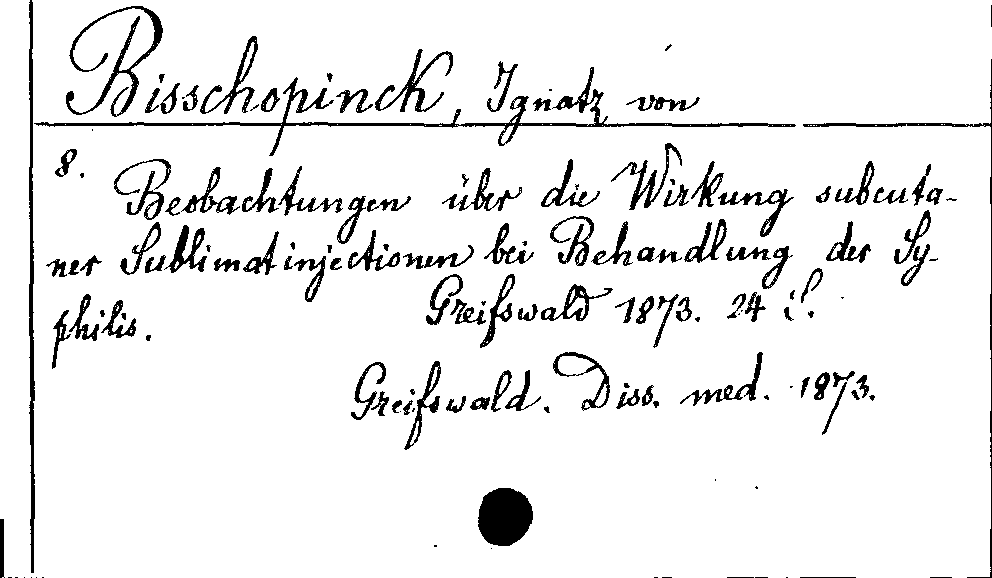 Bisschopinck, Ignatz von
8.
Beobachtungen über die Wirkung subcuta-
ner Sublimatinjectionen bei Behandlung der Sy-
philis. Greifswald 1873. 24 S.
Greifswald. Diss. med. 1873.